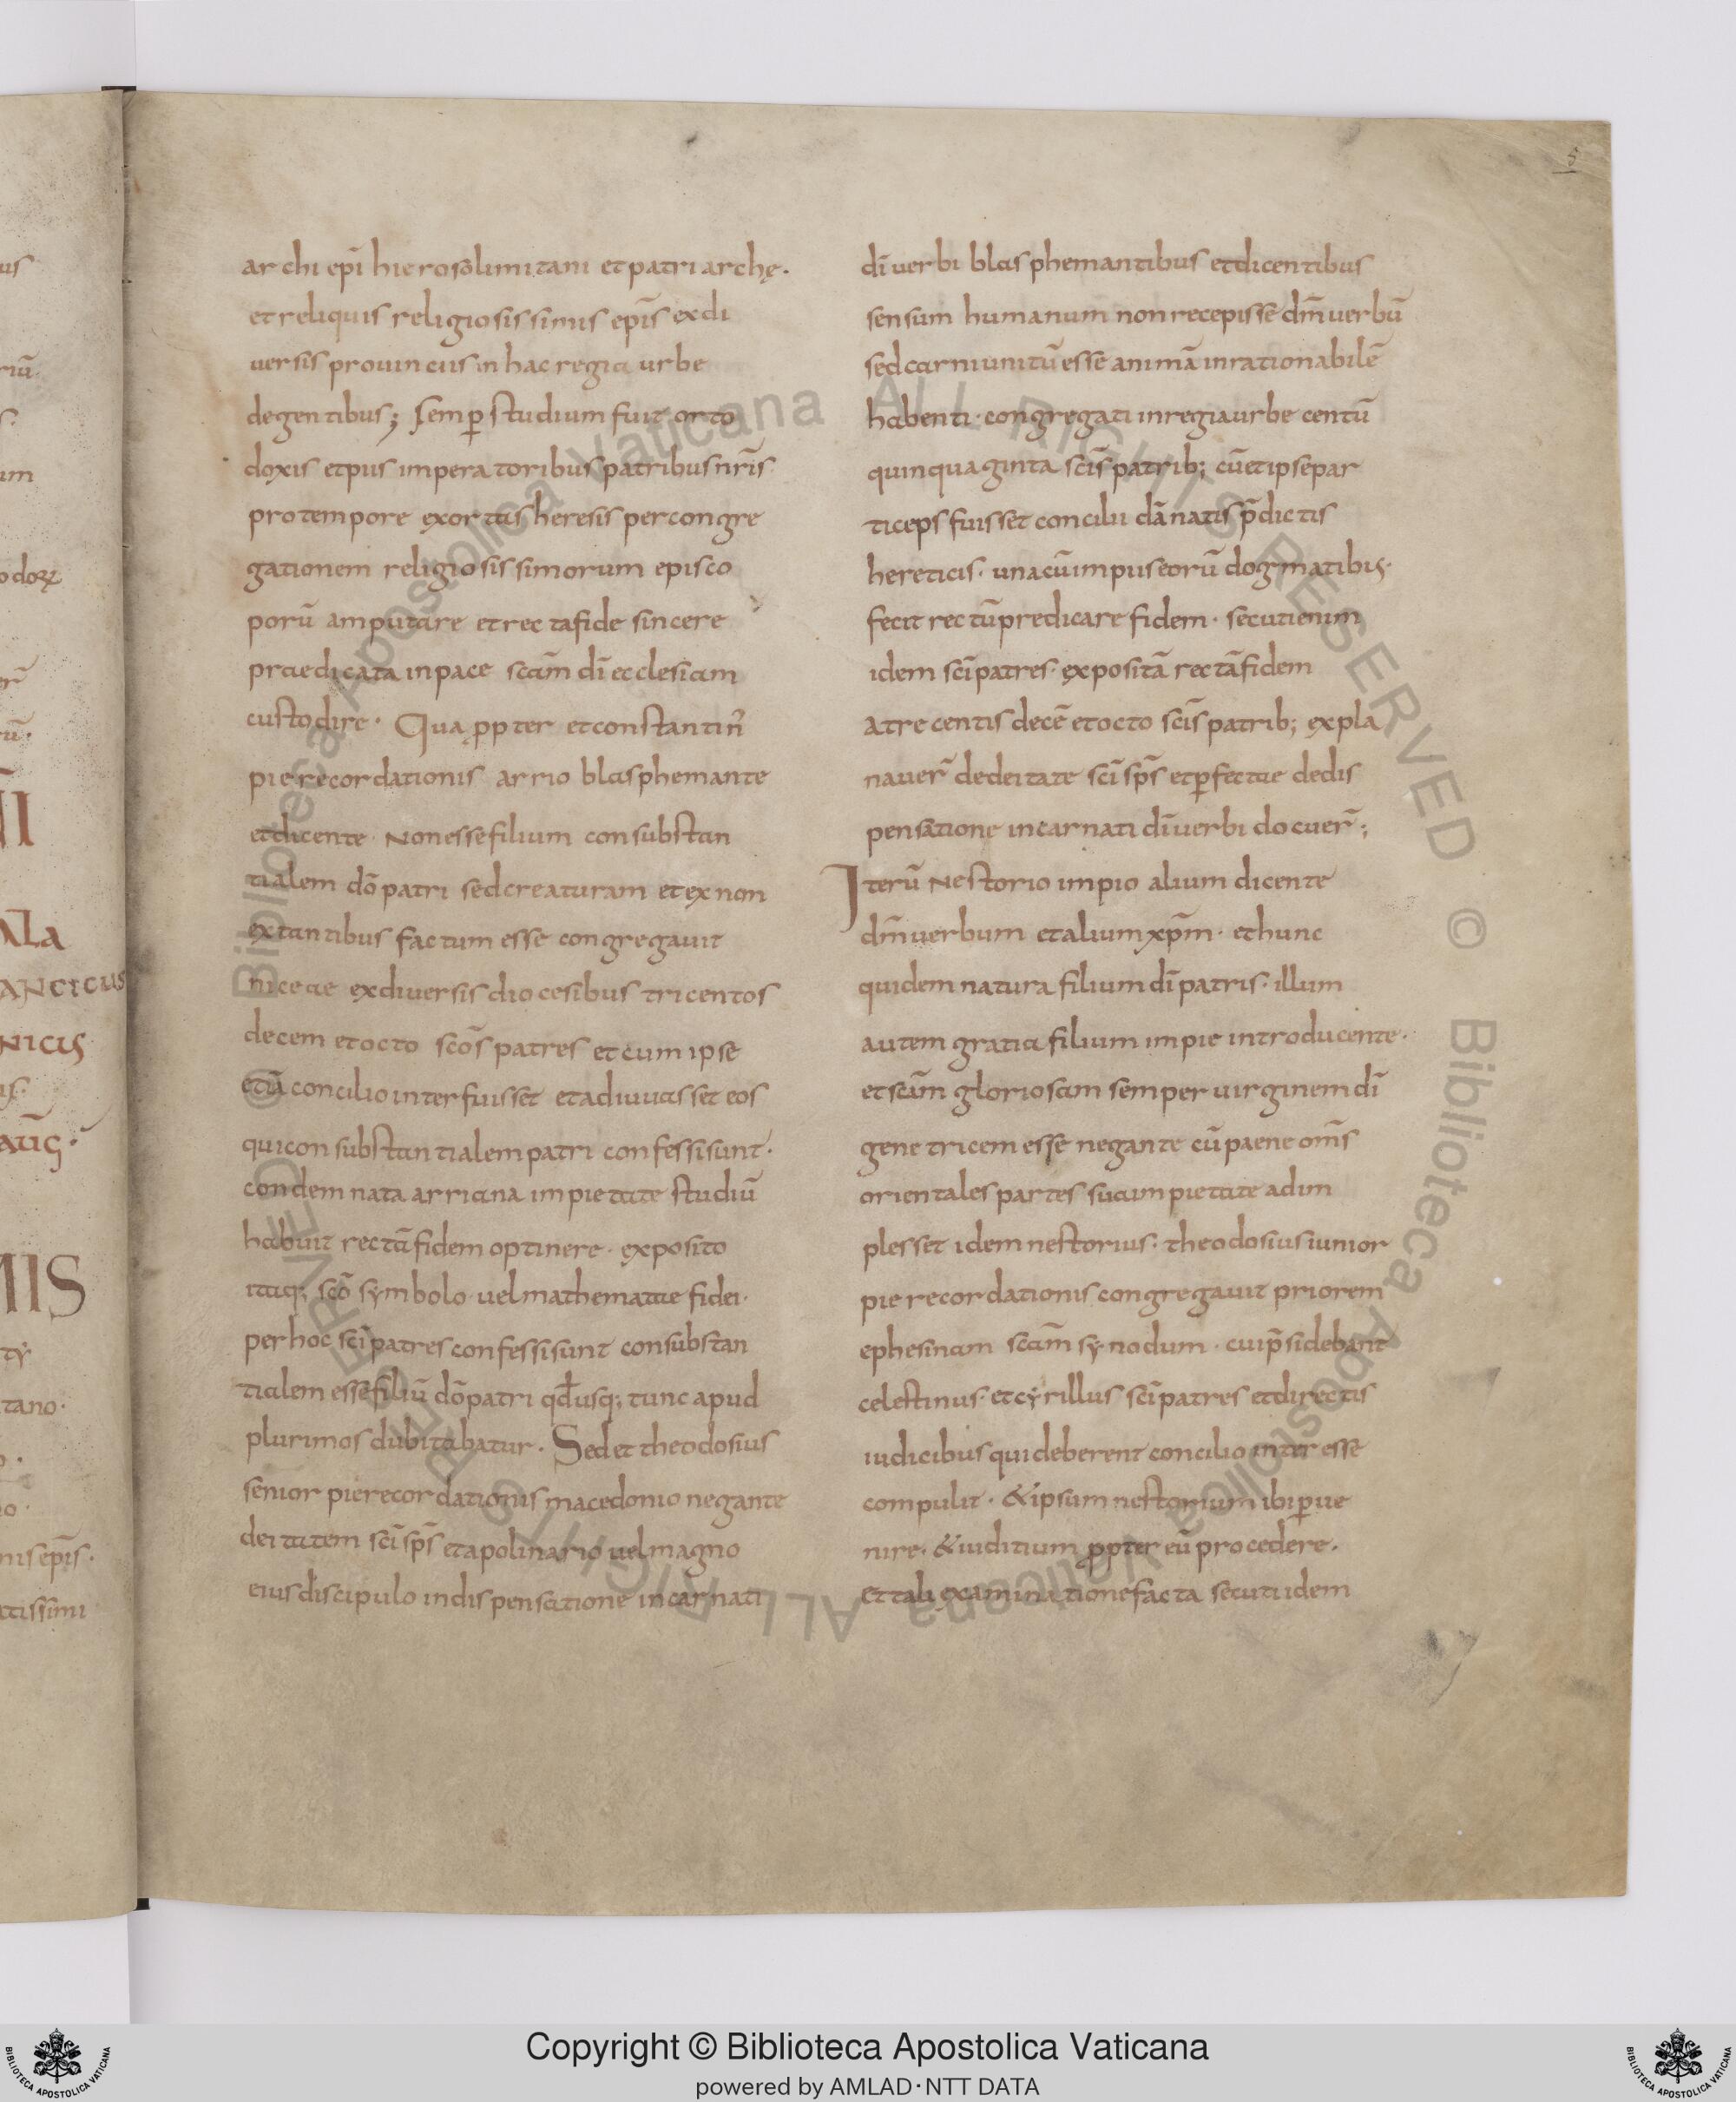 5
archi epī hierosolimitani et patriarchę·
et reliquis religiosissimis epīs exdi
versis provinciis in hac regia urbe
degentibus; Semꝑ studium fuit orto
doxis et piis imperatoribus patribus nr̄is
pro tempore exortas heresis per congre
gationem religiosissimorum episco
porū amputare et recta fide sincere
praedicata in pace scām dī ecclesiam
custodire· Qua ꝓpter et constantin̄
pie recordationis arrio blasphemante
et dicente· Non esse filium consubstan
tialem dō patri sed creaturam et ex non
extantibus factum esse congregavit
niceae ex diversis diocesibus tricentos
decem et octo scōs patres et cum ipse
etiā concilio interfuisset et adiuvasset eos
qui consubstantialem patri confessi sunt·
condemnata arriana impietate studiū
habuit rectā fidem optinere· exposito
itaq; scō symbolo vel mathematae fidei·
per hoc scī patres confessi sunt consubstan
tialem esse filiū dō patri qd̄ usq; tunc apud
plurimos dubitabatur· Sed et theodosius
senior pie recordationis macedonio negante
deitatem scī sp̄s et apolinario vel magno
eius discipulo in dispensatione incarnati
dī verbi blasphemantibus et dicentibus
sensum humanum non recepisse dm̄ verbū
sed carni unitū esse animā inrationabilē
habenti· congregati in regia urbe centū
quinquaginta scīs patrib; cū et ipse par
ticeps fuisset concilii dānatis p̄dictis
hereticis· una cū impiis eorū dogmatibus·
fecit rectū predicare fidem· secuti enim
idem scī patres· expositā rectā fidem
a trecentis decē et octo scīs patrib; expla
naver̄ de deitate scī sp̄s et ꝑfectae de dis
pensatione incarnati dī verbi docuer̄;
Iterū Nestorio impio alium dicente
dm̄ verbum et alium xp̄m· et hunc
quidem natura filium dī patris· illum
autem gratia filium impie introducente·
et scām gloriosam semper virginem dī
genetricem esse negante cū paene om̄s
orientales partes sua impietate adim
plesset idem nestorius· theodosius iunior
pie recordationis congregavit priorem
ephesinam scām synodum· cui p̄sidebant
celestinus· et cyrillus scī patres et directis
iudicibus qui deberent concilio interesse
compulit· & ipsum nestorium ibi ꝑve
nire· & iuditium ꝓpter eū procedere·
et tali examinatione facta secuti idem
Copyright © Biblioteca Apostolica Vaticana
powered by AMLAD·NTT DATA